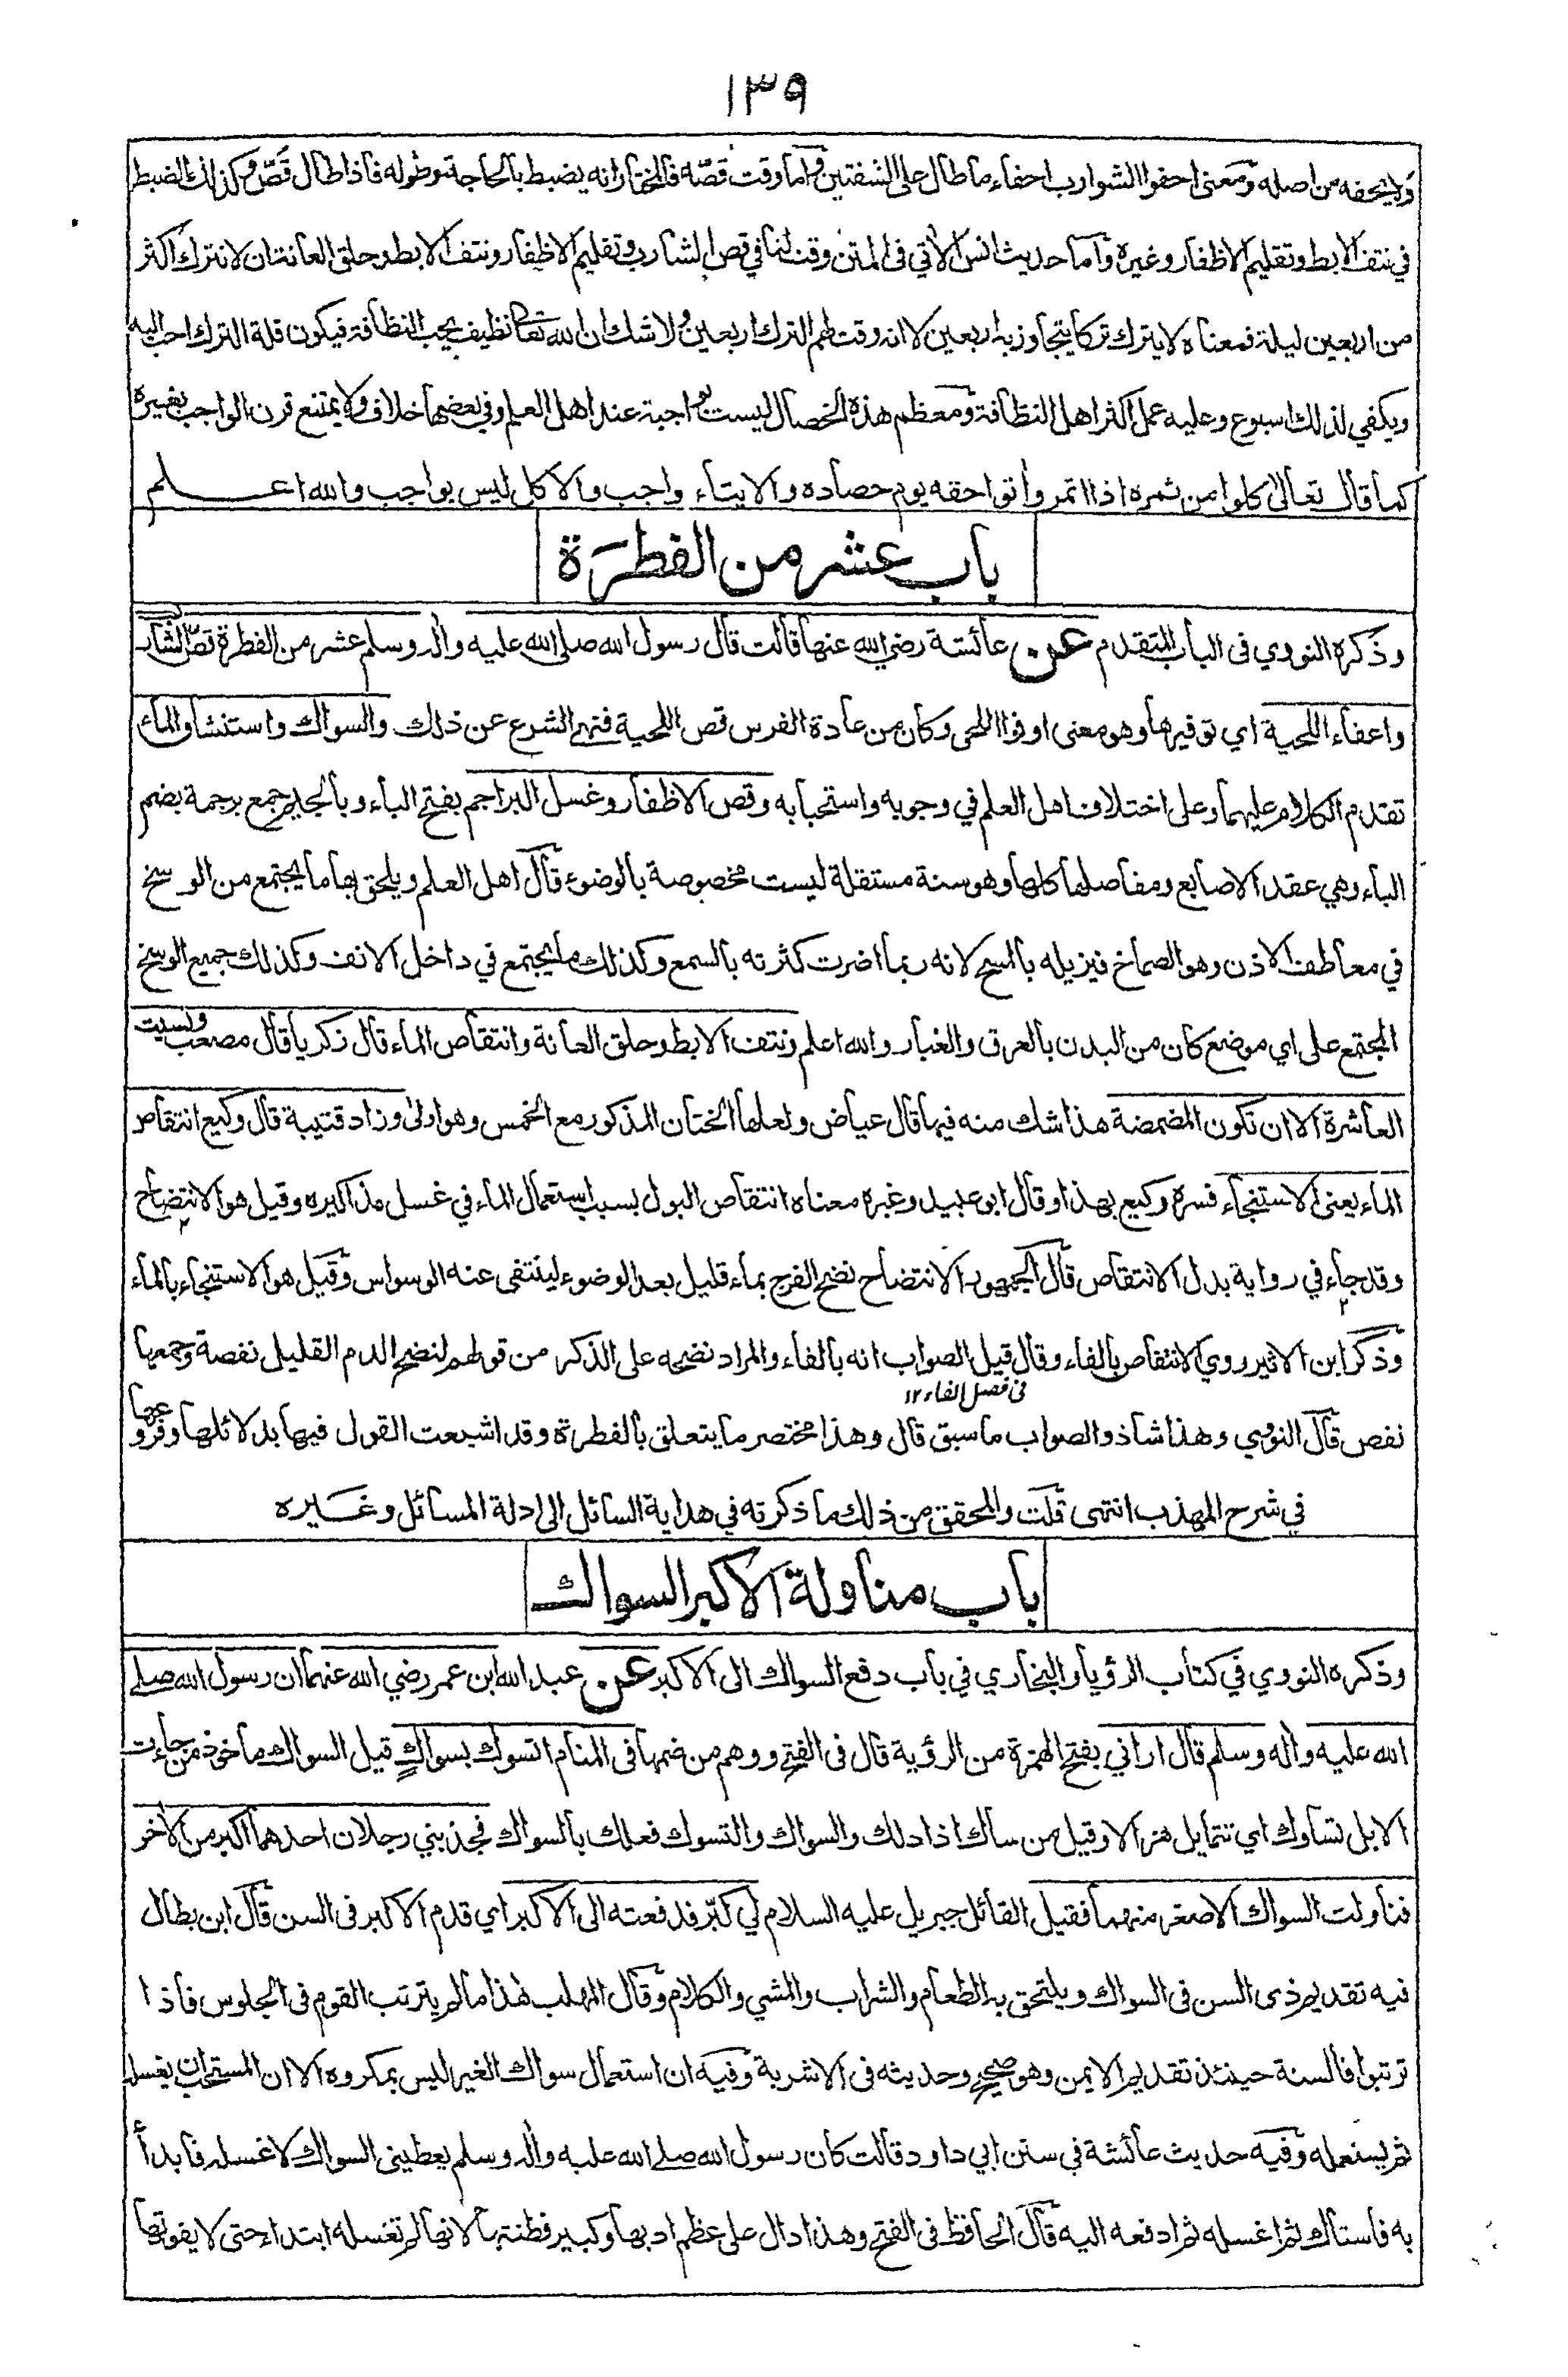 ١٣٩
ولا يحفه من اصله ومعنى احفوا الشوارب احفاء ما طال على الشفتين واما وقت قصّه فالمختار انه يضبط بالحاجة وطوله فاذا طال قَصّ وكذلك الضبط
في نتف الابط وتقليم الاظفار وغيره واما حديث انس الآتي فى المتن وقت لنا في قص الشارب وتقليم الاظفار ونتف الابط وحلق العانة ان لا نترك اكثر
من اربعين ليلة فمعناه لا يترك تركا يتجاوز به اربعين لا انه وقت لهم الترك اربعين ولا شك ان الله تعالى نظيف يحب النظافة فيكون قلة الترك احب اليه
ويكفي لذلك اسبوع وعليه عمل اكثر اهل النظافة ومعظم هذه الخصال ليست بواجبة عند اهل العلم وفي بعضها خلاف ولا يمتنع قرن الواجب بغيره
كما قال تعالى كلوا من ثمره اذا اثمر واتوا حقه يوم حصاده والايتاء واجب والاكل ليس بواجب والله اعلم
باب عشر من الفطرة
وذكره النووي فى الباب المتقدم عن عائشة رضي الله عنها قالت قال رسول الله صلى الله عليه واله وسلم عشر من الفطرة قصّ الشارب
واعفاء اللحية اي توفيرها وهو معنى اوفوا اللحى وكان من عادة الفرس قص اللحية فنهى الشرع عن ذلك والسواك واستنشاق الماء
تقدم الكلام عليهما وعلى اختلاف اهل العلم في وجوبه واستحبابه وقص الاظفار وغسل البراجم بفتح الباء وبالجيم جمع برجمة بضم
الباء وهي عقد الاصابع ومفاصلها كلها وهو سنة مستقلة ليست مخصوصة بالوضوء قال اهل العلم ويلحق بها ما يجتمع من الوسخ
في معاطف الاذن وهو الصماخ فيزيله بالمسح لانه ربما اضرت كثرته بالسمع وكذلك ما يجتمع في داخل الانف وكذلك جميع الوسخ
المجتمع على اي موضع كان من البدن بالعرق والغبار والله اعلم ونتف الابط وحلق العانة وانتقاص الماء قال زكريا قال مصعب ونسيت
العاشرة الا ان تكون المضمضة هذا شك منه فيها قال عياض ولعلها الختان المذكور مع الخمس وهو اولى وزاد قتيبة قال وكيع انتقاص
الماء يعنى الاستنجاء فسره وكيع بهذا وقال ابو عبيد وغيره معناه انتقاص البول بسبب استعمال الماء في غسل مذاكيره وقيل هو الانتضاح
وقد جاء في رواية بدل الانتقاص قال الجمهور الانتضاح نضح الفرج بماء قليل بعد الوضوء لينتفى عنه الوسواس وقيل هو الاستنجاء بالماء
وذكر ابن الاثير روي الانتقاص بالفاء وقال قيل الصواب انه بالفاء والمراد نضحه على الذكر من قولهم لنضح الدم القليل نفصة وجمعها
فى فصل الفاء ١٢
نفص قال النووي وهذا شاذ والصواب ما سبق قال وهذا مختصر ما يتعلق بالفطرة وقد اشبعت القول فيها بدلائلها وفروعها
في شرح المهذب انتهى قلت والمحقق من ذلك ما ذكرته في هداية السائل الى ادلة المسائل وغيره
باب مناولة الاكبر السواك
وذكره النووي في كتاب الرؤيا والبخاري في باب دفع السواك الى الاكبر عن عبد الله ابن عمر رضي الله عنهما ان رسول الله صلے
الله عليه واله وسلم قال اراني بفتح الهمزة من الرؤية قال فى الفتح ووهم من ضمها فى المنام اتسوك بسواكٍ قيل السواك ماخوذ من جاءت
الابل تساوك اي تتمايل هزالا وقيل من ساك اذا دلك والسواك والتسوك فعلك بالسواك فجذبني رجلان احدهما اكبر من الآخر
فناولت السواك الاصغر منهما فقيل القائل جبريل عليه السلام لي كبّر فدفعته الى الاكبر اي قدم الاكبر فى السن قال ابن بطال
فيه تقديم ذى السن فى السواك ويلتحق به الطعام والشراب والمشي والكلام وقال المهلب هذا ما لم يترتب القوم فى الجلوس فاذا
ترتبوا فالسنة حينئذ تقديم الايمن وهو صحيح وحديثه فى الاشربة وفيه ان استعمال سواك الغير ليس بمكروه الا ان المستحب ان يغسله
ثم يستعمله وفيه حديث عائشة في سنن ابي داود قالت كان رسول الله صلے الله عليه واله وسلم يعطينى السواك لاغسله فابدأ
به فاستاك ثم اغسله ثم ادفعه اليه قال الحافظ فى الفتح وهذا دال على عظم ادبها وكبير فطنتها لانها لم تغسله ابتداء حتى لا يفوتها